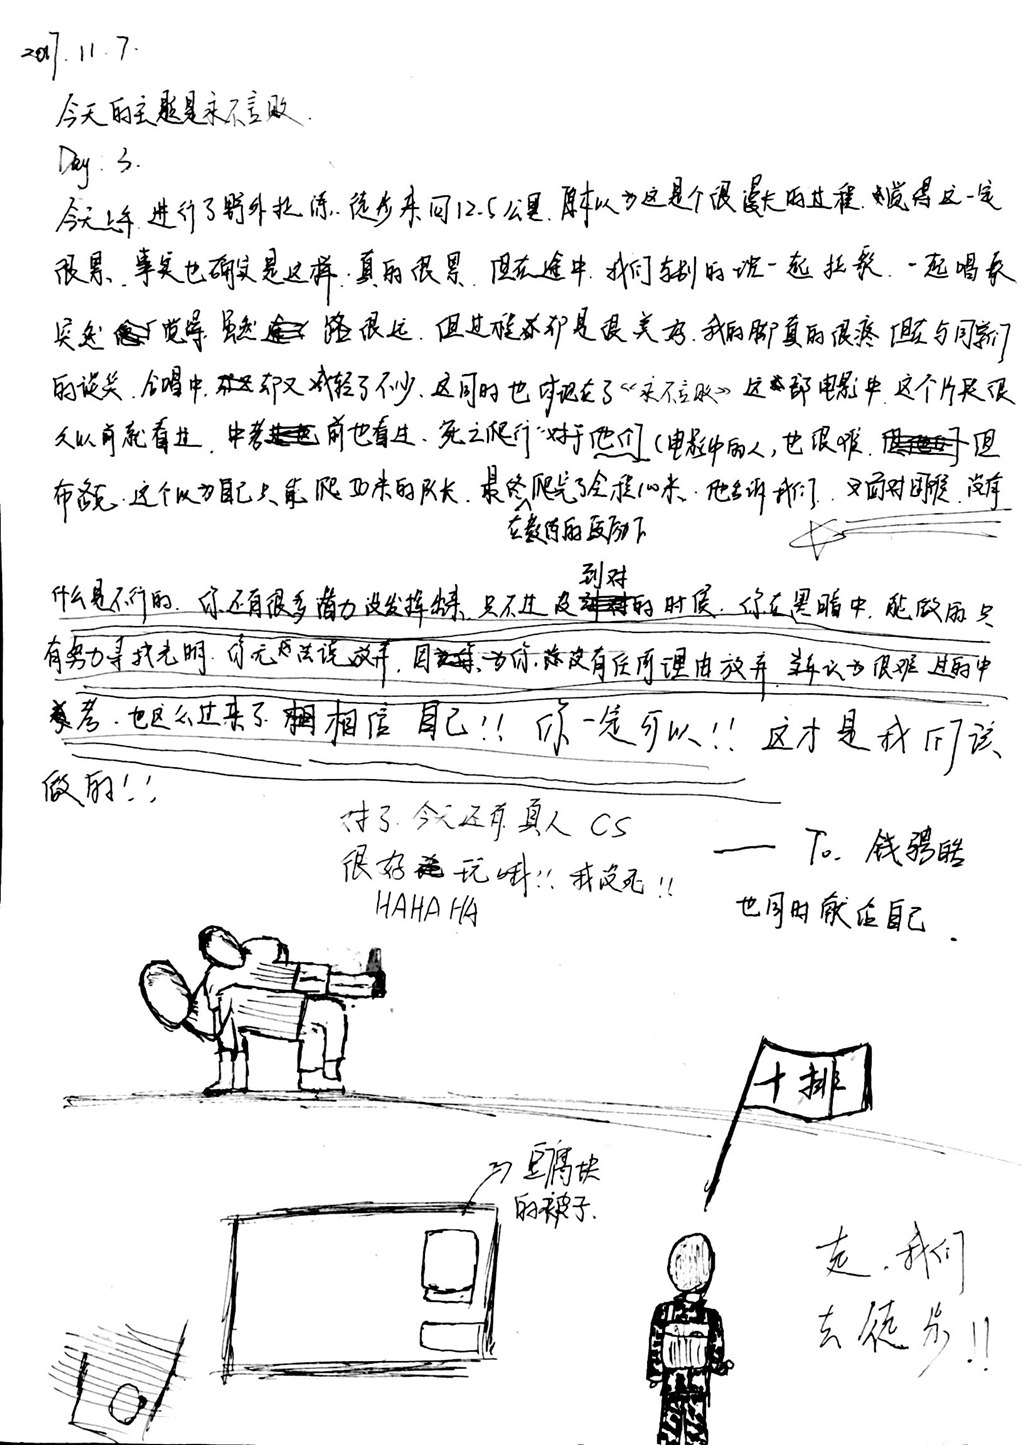 2017.11.7.
今天的主题是永不言败.
Day: 3.
今天上午,进行了野外拉练.徒步来回12.5公里,原本以为这是个很漫长的过程,觉得这一定
很累、事实也确实是这样.真的很累.但在途中.我们与别的班一起拉歌.一起唱歌
突然觉得.虽然路很远.但过程却是很美好.我的脚真的很疼但在与同学们
的谈笑.合唱中.却又减轻了不少.这同时也体现在了《永不言败》这部电影中.这个片段很
久以前就看过.中考前也看过.死亡爬行对于他们(电影中的人,也很难.但
布洛克.这个以为自己只能爬50米的队长.最终爬完了全程100米.他告诉我们.面对困难.没有
在教练的鼓励下
什么是不行的.你还有很多潜力没发挥出来.只不过没到对的时候.你在黑暗中.能做的只
有努力寻找光明.你无法说放弃.因为你没有任何理由放弃.认为很难过的中
考.也这么过来了.相信自己!!你一定可以!!这才是我们该
做的!!
对了.今天还有真人CS
很好玩哦!!我没死!!
HAHAHA
—— To. 钱骋皓
也同时献给自己.
十排
豆腐块
的被子.
走.我们
去徒步!!